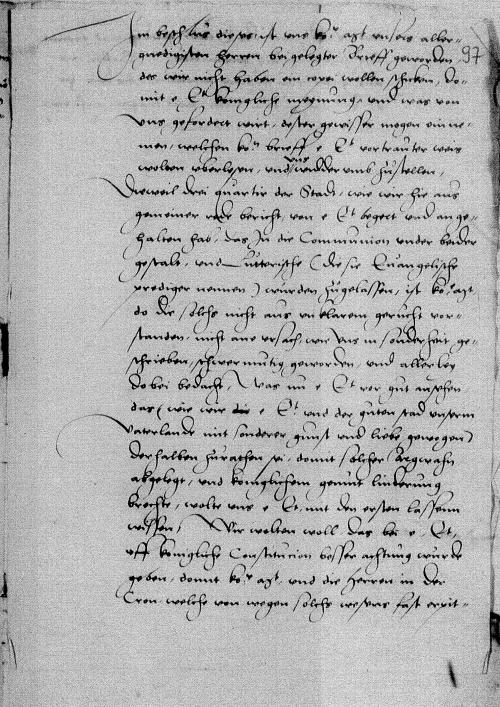 Im beschlus dieses ist uns ko. mt. unsers aller-
gnedigisten herren beigelegter brieff geworden, 97
des wir nicht haben ein copei wollen schicken, do-
mit e Et konigliche meynung, und was von
uns gefordert wirt, dester gewisser mogen einne-
men, welchen ko. brieff e Et vortrauter weis
wolten uberlesen, und uns widder umb zustellen,
Dieweil drei quartir der Stadt, wie wir hie aus
gemeiner rede bericht, von e Et begert und ange-
halten hab, das In die Communion under beider
gestalt, und Lutterische (die sie Euangelische
prediger nennen) wurden zugelassen, ist ko. mt.
do die solchs nicht aus unklarem gerucht vor-
standen, nicht ane ursach, wie uns in sonderheit ge-
schrieben, schwermutig geworden, und allerley
dobei bedacht, Was nu e Et vor gut ansehen,
das (wie wir die e Et und der guten stad unserm
vaterlande mit sonderer gunst und liebe gewogen)
derhalben zurathen sei, domit solcher Argwahn
abgelegt, und koniglichem gemut linderung
brechte, wolte uns e Et mit den ersten lassenn
wissen, Wir wolten woll das bei e Et,
uff konigliche Constitucion besser achtung wurde
geben, domit ko. mt. und die herren in der
Cron welche von wegen solchs wesens fast erpit-